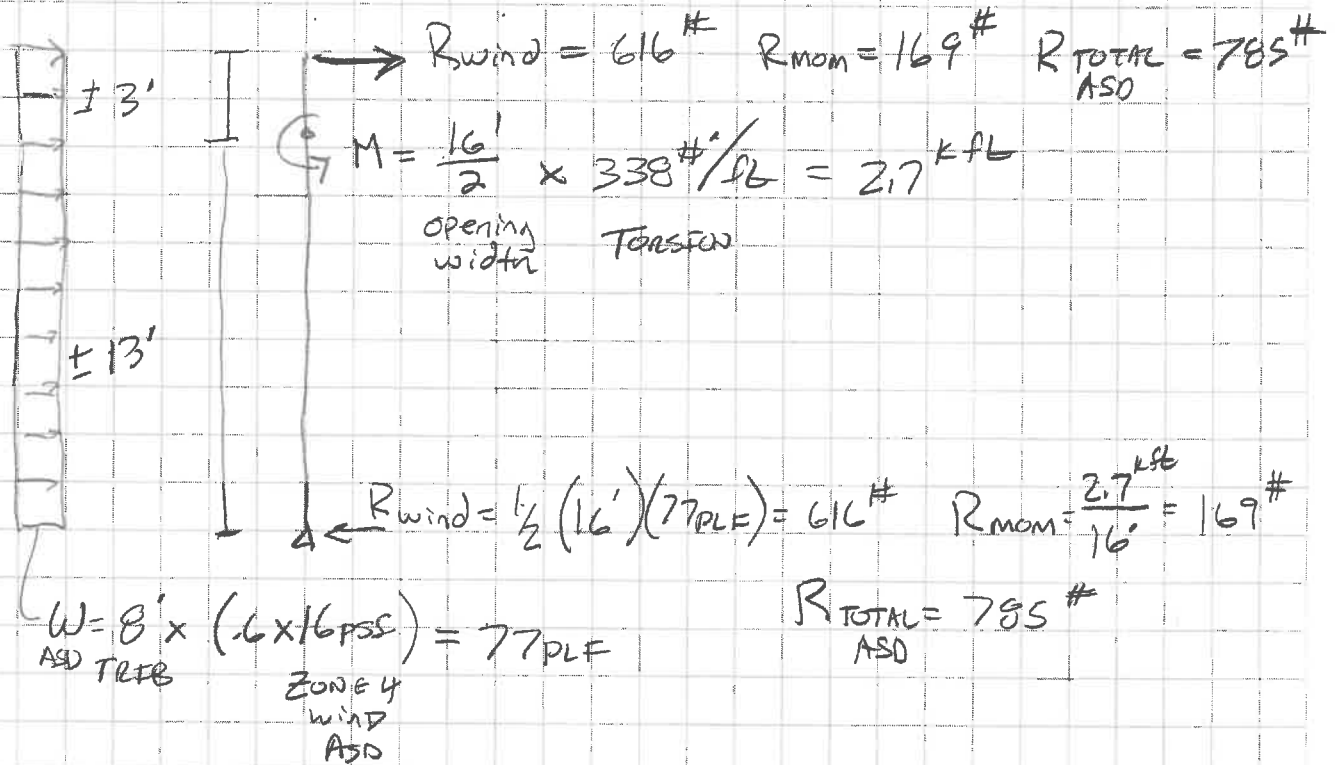 Rwind = 616# Rmom = 169# RTOTAL = 785#
ASD
± 3'
M = 16'/2 × 338#'/ft = 2.7 kft
opening width TORSION
± 13'
Rwind = 1/2 (16')(77PLF) = 616# Rmom = 2.7kft/16' = 169#
RTOTAL = 785#
ASD
W = 8' × (.6 × 16psf) = 77PLF
ASD TRIB
ZONE 4
WIND
ASD